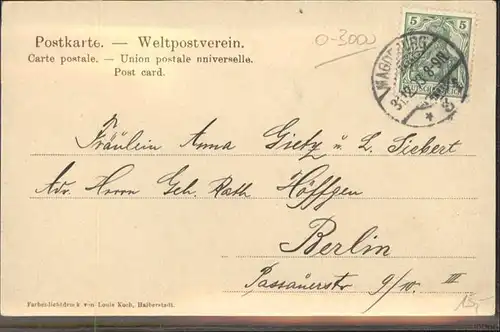 Postkarte. — Weltpostverein.
Carte postale. — Union postale nniverselle.
Post card.
0-3000
5 5
MAGDEBURG
Fräulein Anna Gietz u. L. Siebert
Adr. Herrn Geh. Rath Höffgen
Berlin
Passauerstr 9/III. III
Farbenlichtdruck von Louis Koch, Halberstadt.